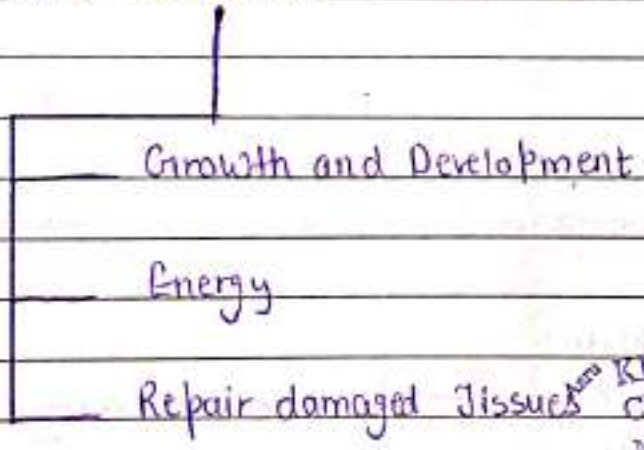 Growth and Development
Energy
Repair damaged Tissues